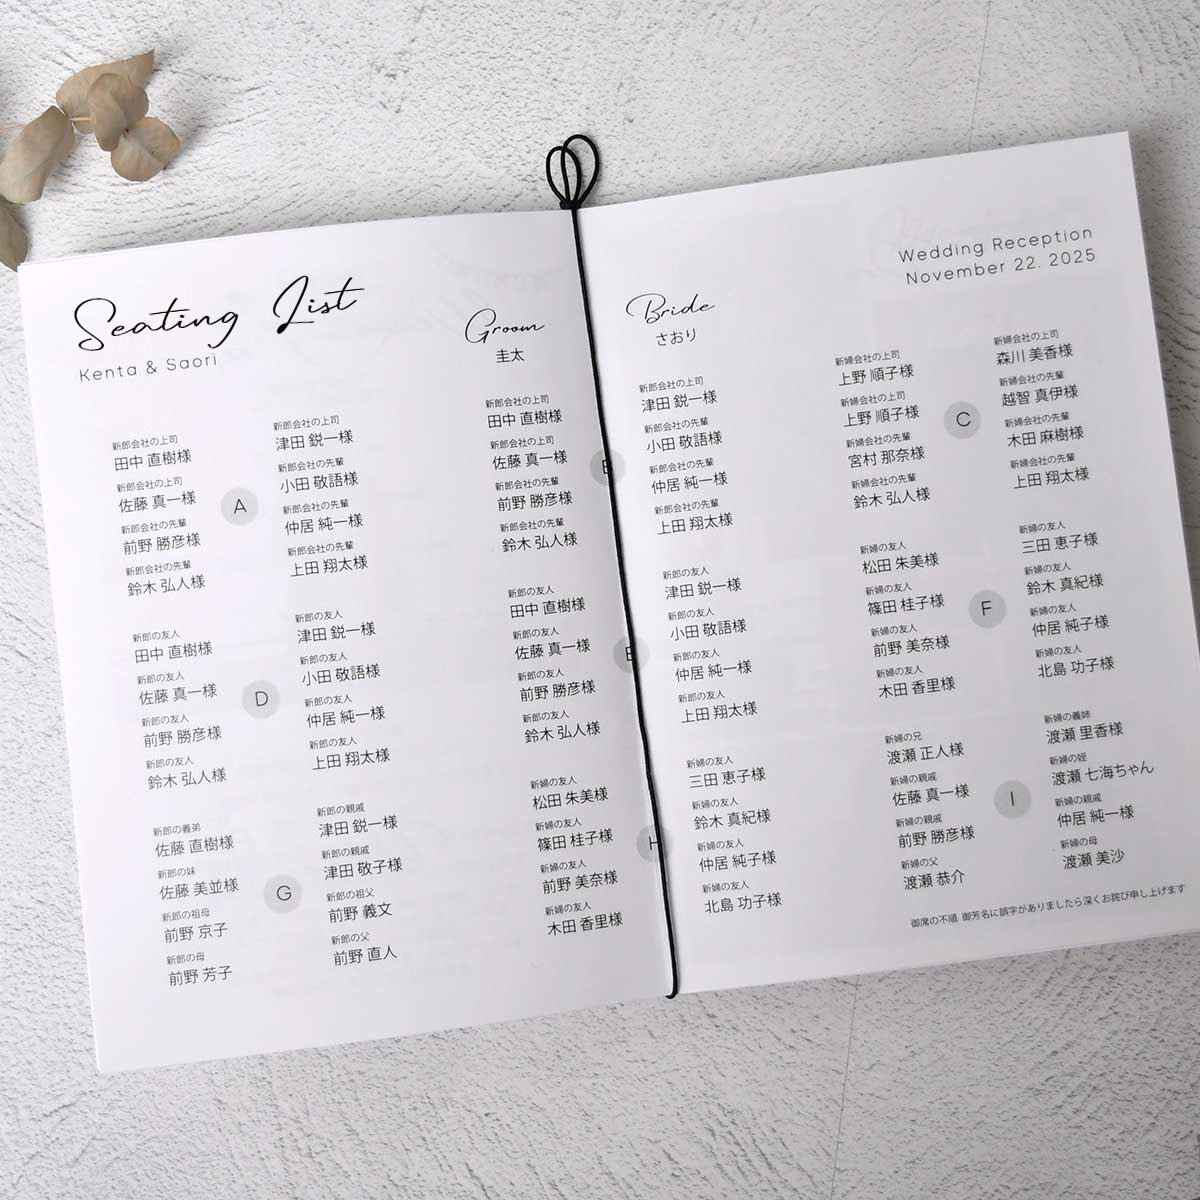 Seating List
Kenta & Saori
Groom
圭太
Bride
さおり
Wedding Reception
November 22. 2025
新郎会社の上司
田中 直樹様
新郎会社の上司
佐藤 真一様
新郎会社の先輩
前野 勝彦様
新郎会社の先輩
鈴木 弘人様
A
新郎会社の上司
津田 鋭一様
新郎会社の先輩
小田 敬語様
新郎会社の先輩
仲居 純一様
新郎会社の先輩
上田 翔太様
新郎会社の上司
田中 直樹様
新郎会社の上司
佐藤 真一様
新郎会社の先輩
前野 勝彦様
新郎会社の先輩
鈴木 弘人様
新郎会社の上司
津田 鋭一様
新郎会社の先輩
小田 敬語様
新郎会社の先輩
仲居 純一様
新郎会社の先輩
上田 翔太様
新婦会社の上司
上野 順子様
新婦会社の上司
上野 順子様
新婦会社の先輩
宮村 那奈様
新婦会社の先輩
鈴木 弘人様
C
新婦会社の上司
森川 美香様
新婦会社の先輩
越智 真伊様
新婦会社の先輩
木田 麻樹様
新婦会社の先輩
上田 翔太様
新郎の友人
田中 直樹様
新郎の友人
佐藤 真一様
新郎の友人
前野 勝彦様
新郎の友人
鈴木 弘人様
D
新郎の友人
津田 鋭一様
新郎の友人
小田 敬語様
新郎の友人
仲居 純一様
新郎の友人
上田 翔太様
新郎の友人
田中 直樹様
新郎の友人
佐藤 真一様
新郎の友人
前野 勝彦様
新郎の友人
鈴木 弘人様
新郎の友人
津田 鋭一様
新郎の友人
小田 敬語様
新郎の友人
仲居 純一様
新郎の友人
上田 翔太様
新婦の友人
松田 朱美様
新婦の友人
篠田 桂子様
新婦の友人
前野 美奈様
新婦の友人
木田 香里様
F
新婦の友人
三田 恵子様
新婦の友人
鈴木 真紀様
新婦の友人
仲居 純子様
新婦の友人
北島 功子様
新郎の義弟
佐藤 直樹様
新郎の妹
佐藤 美並様
新郎の祖母
前野 京子
新郎の母
前野 芳子
G
新郎の親戚
津田 鋭一様
新郎の親戚
津田 敬子様
新郎の祖父
前野 義文
新郎の父
前野 直人
新婦の友人
松田 朱美様
新婦の友人
篠田 桂子様
新婦の友人
前野 美奈様
新婦の友人
木田 香里様
H
新婦の友人
三田 恵子様
新婦の友人
鈴木 真紀様
新婦の友人
仲居 純子様
新婦の友人
北島 功子様
新婦の兄
渡瀬 正人様
新婦の親戚
佐藤 真一様
新婦の親戚
前野 勝彦様
新婦の父
渡瀬 恭介
I
新婦の義姉
渡瀬 里香様
新婦の姪
渡瀬 七海ちゃん
新婦の親戚
仲居 純一様
新婦の母
渡瀬 美沙
御席の不順 御芳名に誤字がありましたら深くお詫び申し上げます